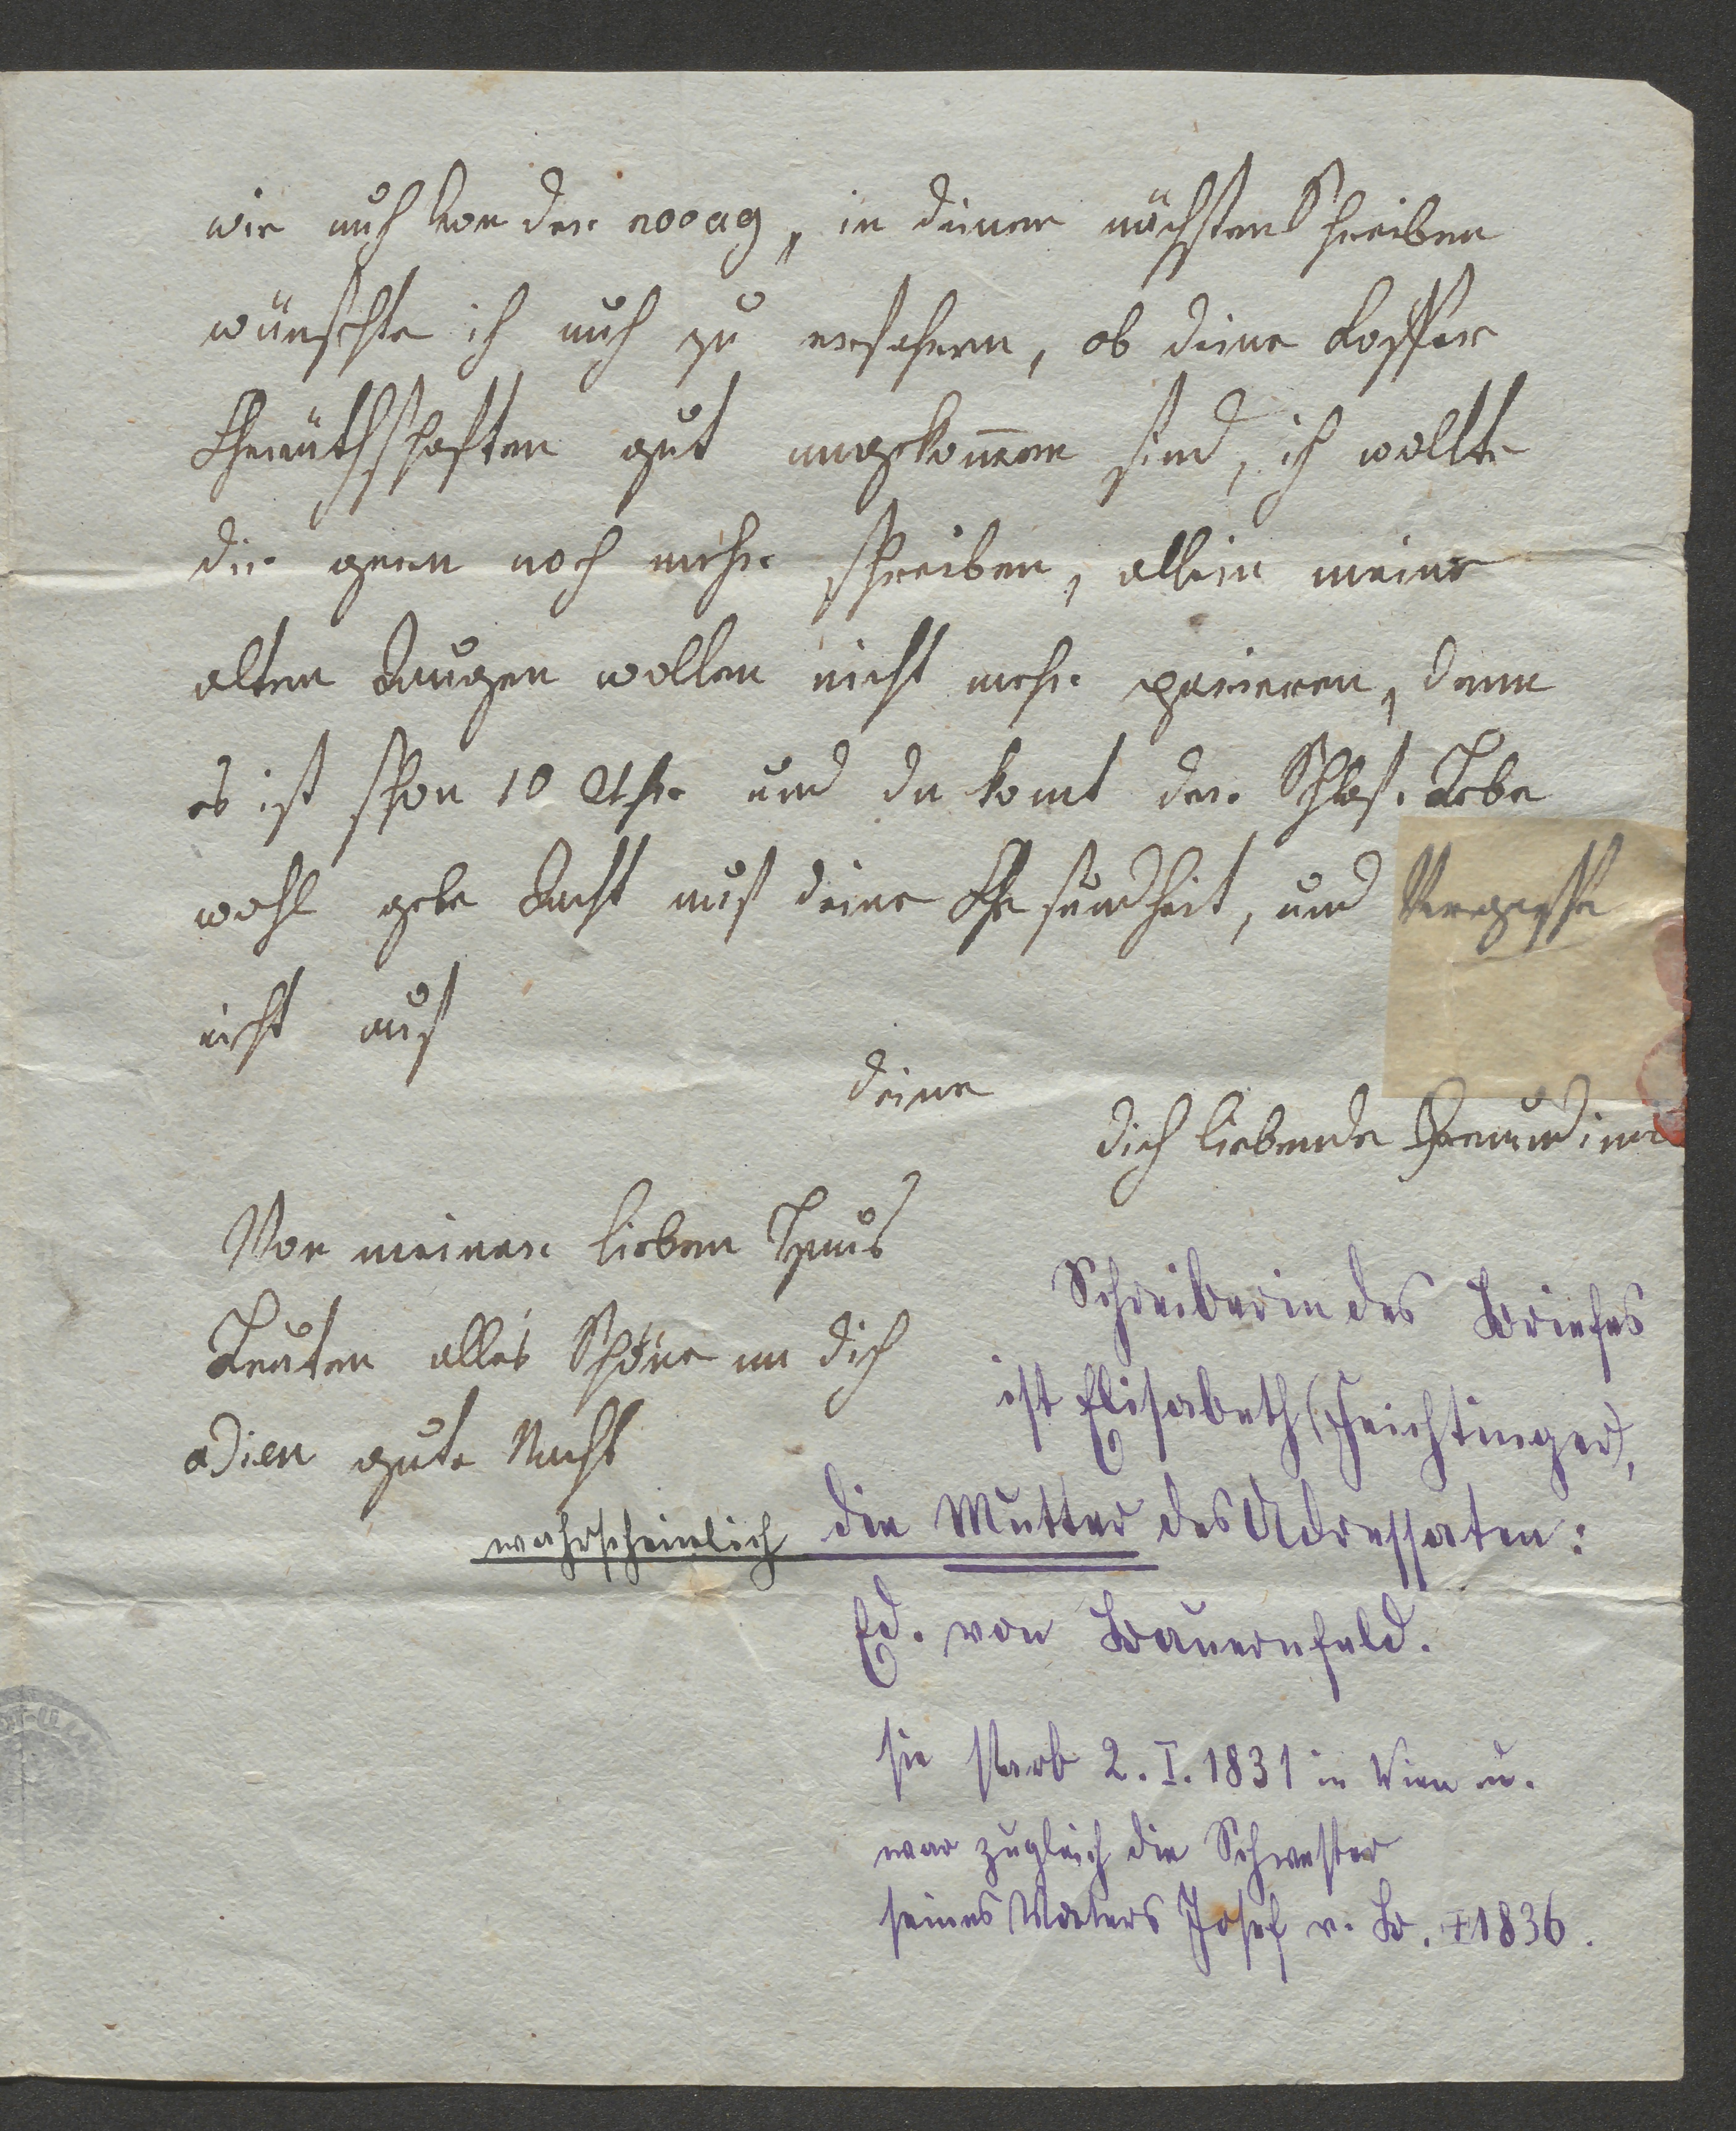 wie auch von der nooag, in deinen nächsten Schreiben
wünschte ich auch zu erfahren, ob deine Koffer
gut angekom̄en sind, ich wollte
dir gern noch mehr schreiben, allein meine
alten Augen wollen nicht mehr parieren, denn
es ist schon 10 Uhr und da komt der Schlaf. Lebe
wohl gebe Acht auf deine Gesundheit, und Vergesse
nicht auf
deine
dich liebende Freundinn
Von meinen lieben Haus
Leuten alles Schöne an dich
adien gute Nacht
Schreiberin des Briefes
ist Elisabeth (Feichtinger),
wahrscheinlich die Mutter des Adressaten:
Ed. von Bauernfeld.
sie starb 2. I. 1831 in Wien u.
war zugleich die Schwester
seines Vaters Josef v. B. +1836.